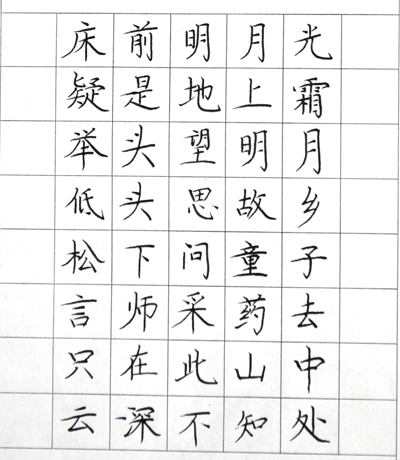 床前明月光
疑是地上霜
举头望明月
低头思故乡
松下问童子
言师采药去
只在此山中
云深不知处